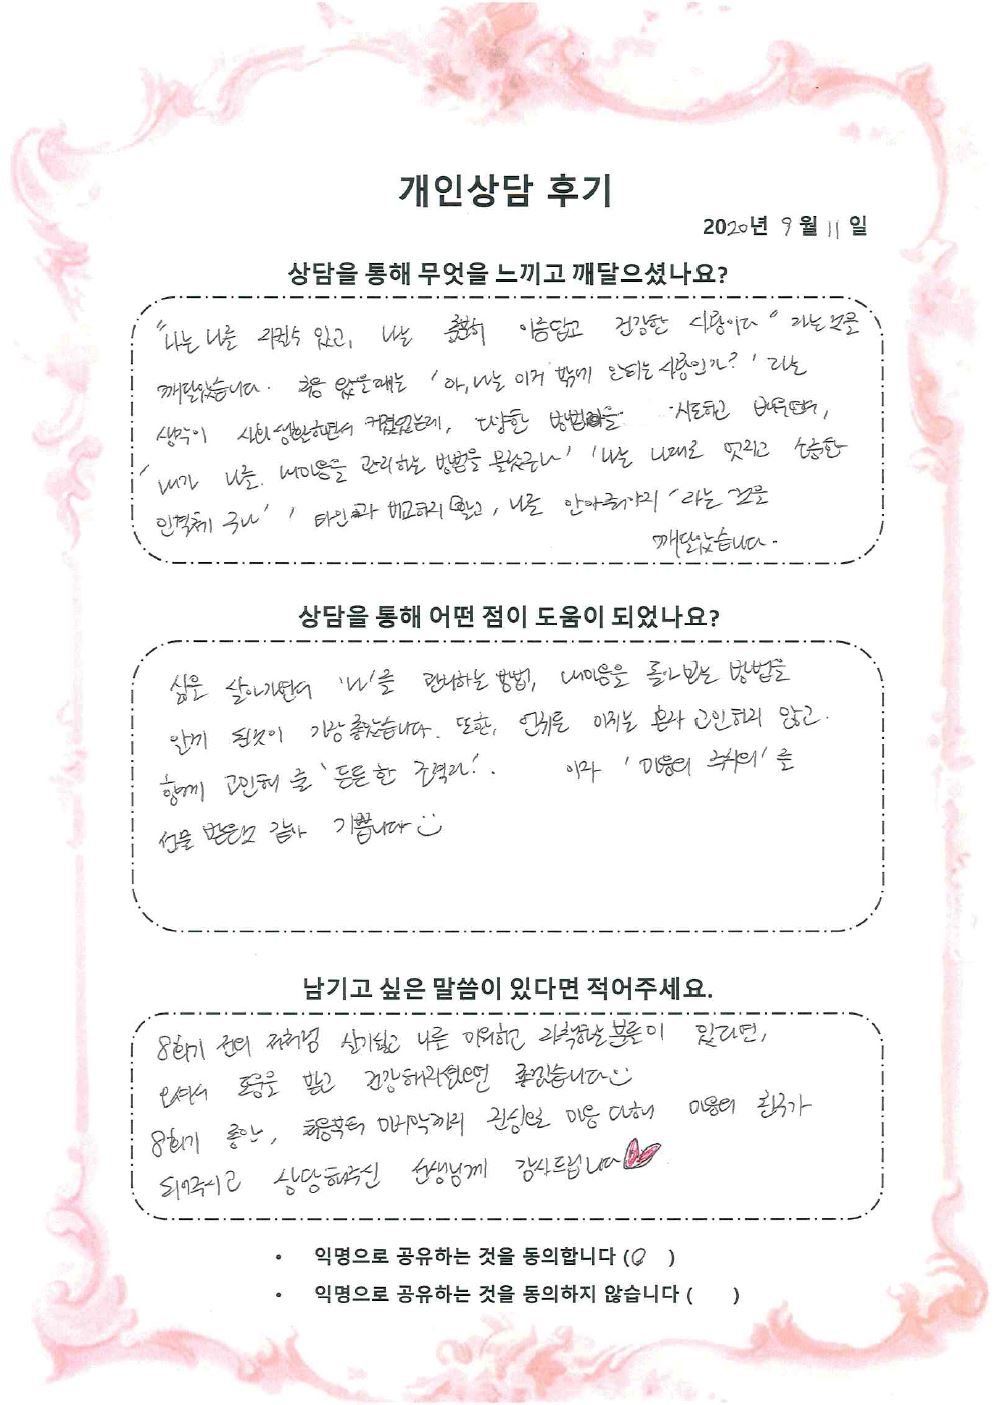 개인상담 후기
2020년 9월 11일
상담을 통해 무엇을 느끼고 깨달으셨나요?
"나는 나를 지킬수 있고, 나는 충분히 아름답고 건강한 사람이다" 라는 것을
깨달았습니다. 처음 왔을때는 '아, 나는 이거 밖에 안되는 사람인가?' 라는
생각이 사회생활하면서 커졌었는데, 다양한 방법들을 시도하고 배우면서,
'내가 나를. 내마음을 관리하는 방법을 몰랐구나' '나는 나대로 멋지고 소중한
인격체구나' '타인과 비교하지 말고, 나를 안아줘야지' 라는 것을
깨달았습니다.
상담을 통해 어떤 점이 도움이 되었나요?
삶을 살아가면서 '나'를 관리하는 방법, 내마음을 돌아보는 방법을
알게 된것이 가장 좋았습니다. 또한, 언제든 이제는 혼자 고민하지 않고.
함께 고민해 줄 '든든한 조력자'. 이자 '마음의 주치의'를
선물 받은것 같아 기쁩니다
남기고 싶은 말씀이 있다면 적어주세요.
8회기 전의 저처럼 살기싫고 나를 미워하고 자책하는 분들이 있다면,
오셔서 도움을 받고 건강해지셨으면 좋겠습니다
8회기 동안, 처음부터 마지막까지 진심으로 마음 다해 마음의 친구가
되어주시고 상담해주신 선생님께 감사드립니다
• 익명으로 공유하는 것을 동의합니다 (O )
• 익명으로 공유하는 것을 동의하지 않습니다 ( )